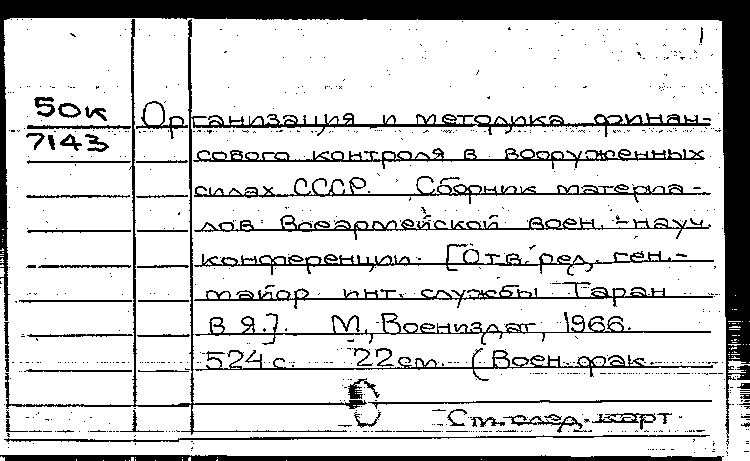 1
50к
7143
Организация и методика финан-
сового контроля в вооруженных
силах СССР. Сборник материа-
лов Всеармейской воен.-науч.
конференции. [Отв. ред. ген.-
майор инт. службы Таран
В.Я.]. М., Воениздат, 1966.
524 с. 22 см. (Воен. фак.
См. след. карт.